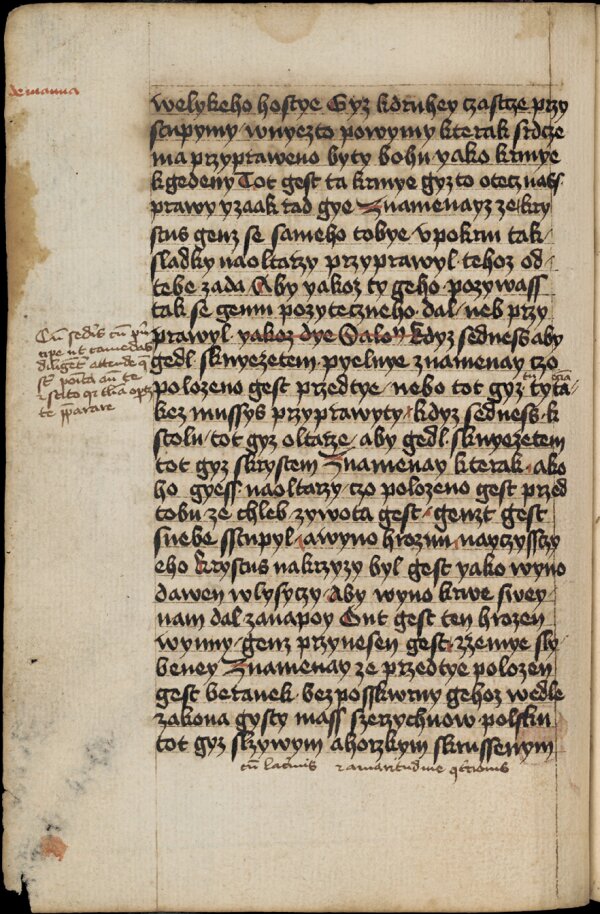 de manna
welykeho hostye Gyz kdruhey czastcze przy
stupymy wnyezto powymy kterak srdcze
ma przypraweno byty bohu yako krmye
kgedeny Tot gest ta krmye gyzto otecz nass
prawy yzaak rad gye Znamenayz ze kry
stus genz se sameho tobye vpokrm tak
sladky naoltarzy przyprawyl tehoz od
tebe zada Aby yakoz ty geho pozywass
tak se gemu pozyteczneho dal neb przy
prawyl yakoz dye Salon Kdyz sedness aby
gedl sknyezetem pyelnye znamenay czo
polozeno gest przedtye nebo tot gyz ty ta
kez mussys przyprawyty kdyz sedness k
stolu tot gyz oltarze aby gedl sknyezetem
tot gyz skrystem Znamenay kterak ako
ho gyess naoltarzy czo polozeno gest przed
tobu ze chleb zywota gest genzt gest
snebe sstupyl awyno hroznu nayczyssczy
eho Krystus nakrzyzy byl gest yako wyno
dawen wlysyczy Aby wyno krwe swey
nam dal zanapoy Ont gest ten hrozen
wynny genz przynesen gest zzemye sly
beney Znamenay ze przedtye polozen
gest beranek bezposskwrny gehoz wedle
zakona gysty mass szerzychnow polsku
tot gyz skrzywym ahorzkym skrussenym
cum lacrimis et amaritudine
Cum sederis cum prin
cipe ut comedas
diligenter attende que
sunt posita an te
te preparare